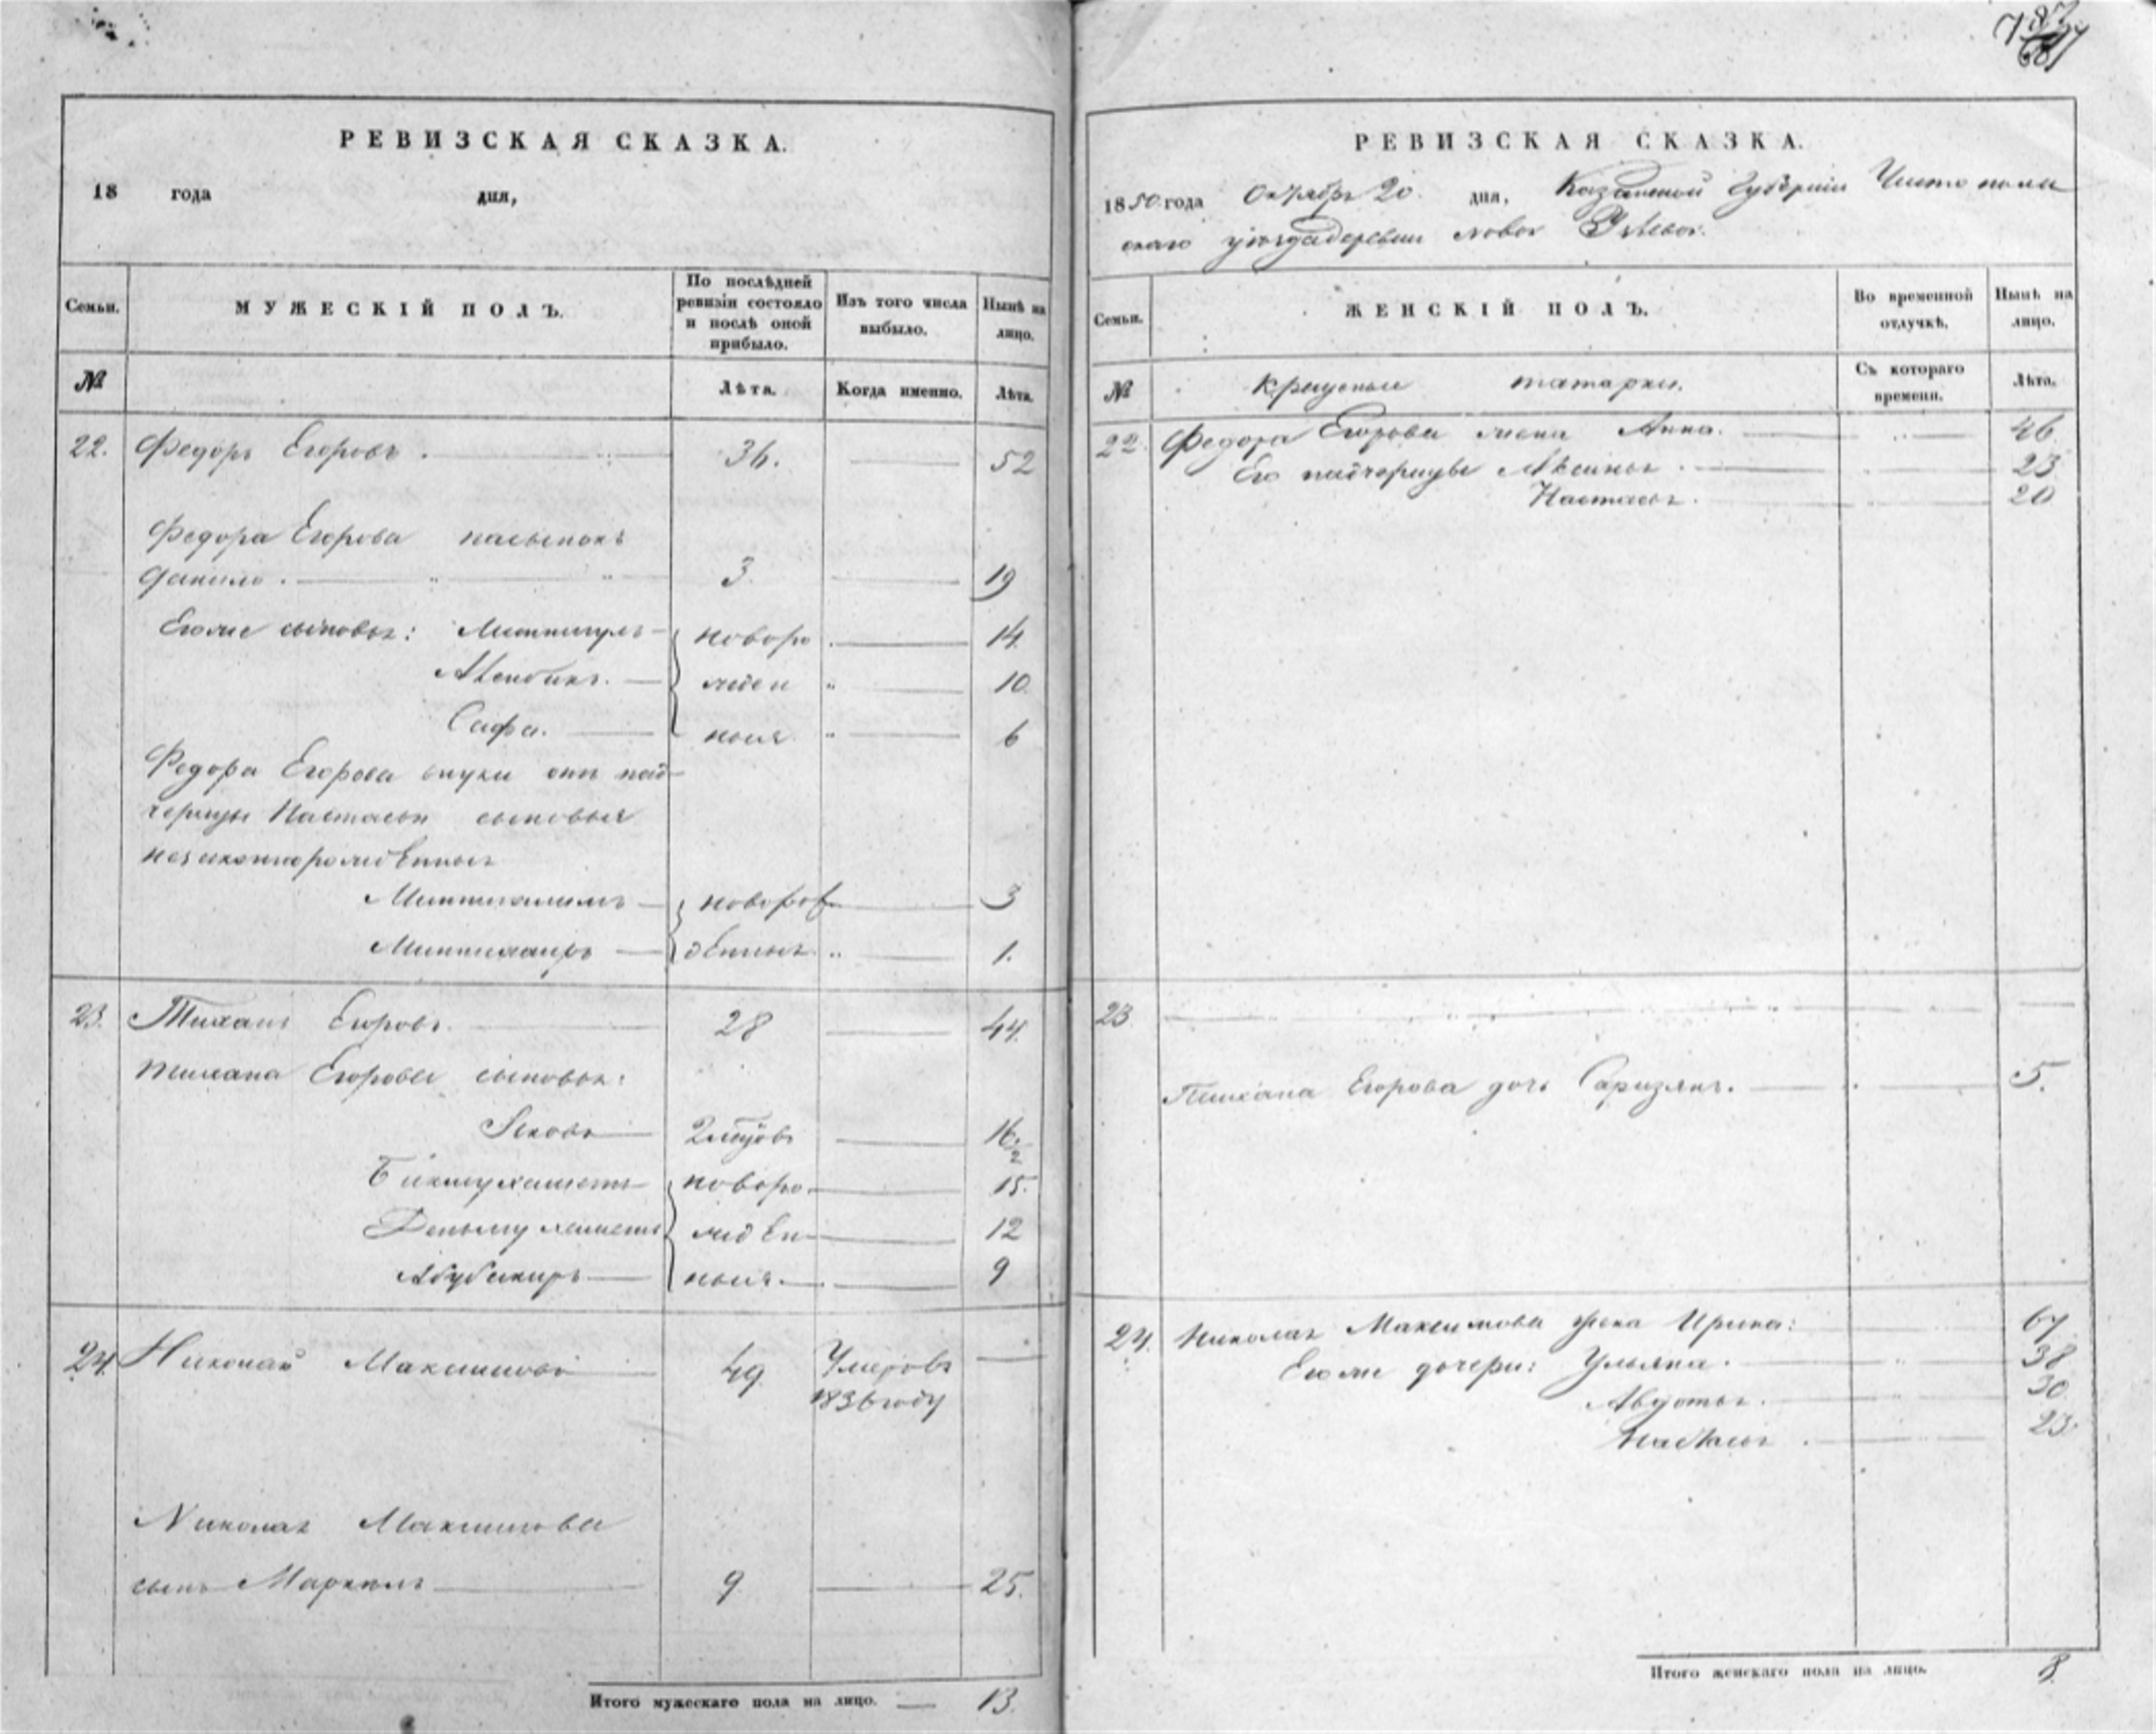 РЕВИЗСКАЯ СКАЗКА.
18 года дня,
Семьи.
МУЖЕСКІЙ ПОЛЪ.
По послѣдней ревизіи состояло и послѣ оной прибыло.
Изъ того числа выбыло.
Нынѣ на лицо.
№
Лѣта.
Когда именно.
Лѣта.
22. Федоръ Егоровъ. 36. 52
Федора Егорова пасынокъ
Данило. 3. 19
Его же сыновья: Миннигулъ новоро 14.
жден 10.
Сафа. ныя 6
Федора Егорова внуки отъ пад-
черицы Настасьи сыновья
незаконнорожденныя
новорож 3
денныя 1.
23. Тиханъ Егоровъ. 28 44.
Тихана Егорова сыновья:
Яковъ 16 1/2
Бикмухаметъ новоро 15.
жден 12
Абубакиръ ныя. 9
24. Николай Максимовъ 49. Умеръ въ
1836 году
Николая Максимова
сынъ 9 25.
Итого мужескаго пола на лицо. 13.
РЕВИЗСКАЯ СКАЗКА.
1850 года Октября 20 дня, Казанской Губерніи Чистополь
скаго уѣзда деревни
Семьи.
ЖЕНСКІЙ ПОЛЪ.
Во временной отлучкѣ.
Нынѣ на лицо.
№
Крещеныя татарки.
Съ котораго времени.
Лѣта.
22. Федора Егорова жена Анна. 46.
Его падчерицы 23
Настасья. 20
23
Тихана Егорова дочь 5.
24. Николая Максимова жена Ирина: 67
Его же дочери: Ульяна. 38
Авдотья. 30
Настасья. 23.
Итого женскаго пола на лицо. 8.